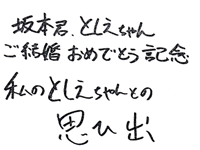 坂本君、としえちゃん
ご結婚おめでとう記念
私のとしえちゃんとの
思ひ出